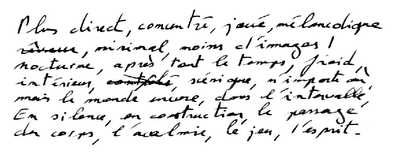 Plus direct, concentré, joué, mélancolique
rêveur, minimal, moins d'images !
nocturne, après tout le temps, froid,
intérieur, contrôlé, scénique, n'importe où,
mais le monde encore, dans l'intervalle,
En silence, en construction, le passage
du corps, l'acalmie, le jeu, l'esprit.